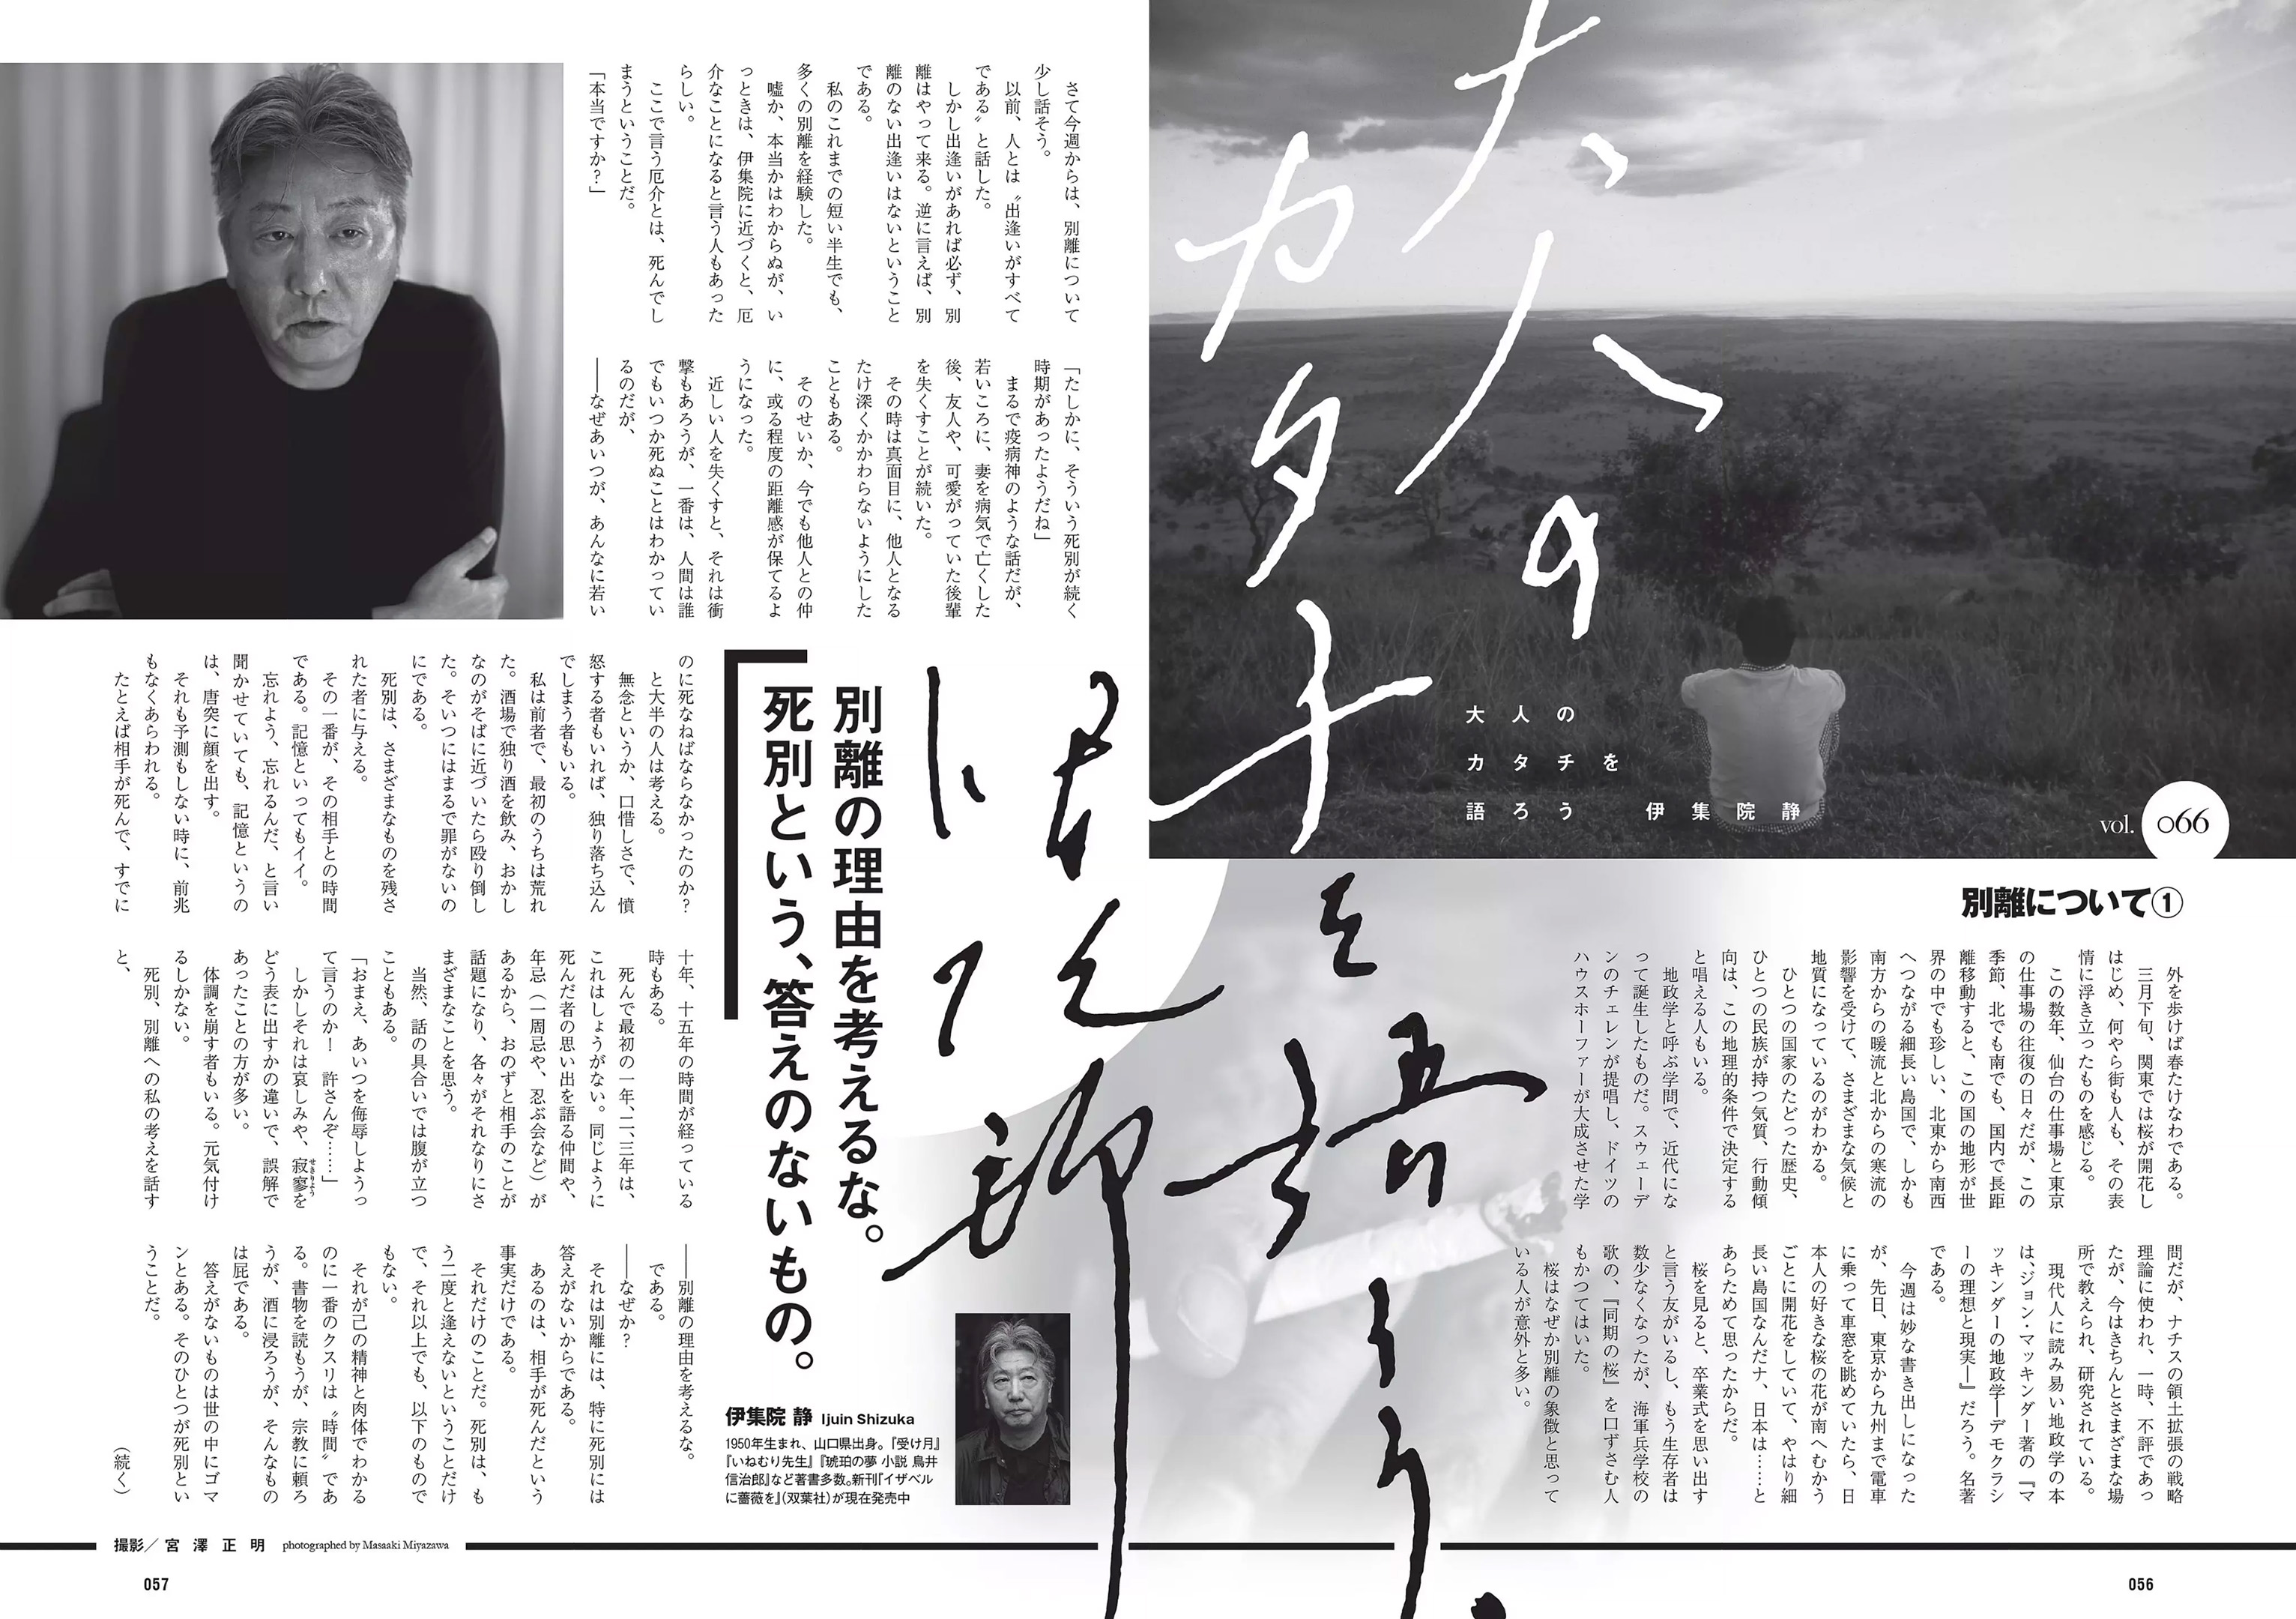 大人の
カタチ
を語ろう。
伊集院静
大人の
カタチを
語ろう 伊集院静
vol. 066
別離について①
外を歩けば春たけなわである。
三月下旬、関東では桜が開花し
はじめ、何やら街も人も、その表
情に浮き立ったものを感じる。
この数年、仙台の仕事場と東京
の仕事場の往復の日々だが、この
季節、北でも南でも、国内で長距
離移動すると、この国の地形が世
界の中でも珍しい、北東から南西
へつながる細長い島国で、しかも
南方からの暖流と北からの寒流の
影響を受けて、さまざまな気候と
地質になっているのがわかる。
ひとつの国家のたどった歴史、
ひとつの民族が持つ気質、行動傾
向は、この地理的条件で決定する
と唱える人もいる。
地政学と呼ぶ学問で、近代にな
って誕生したものだ。スウェーデ
ンのチェレンが提唱し、ドイツの
ハウスホーファーが大成させた学
問だが、ナチスの領土拡張の戦略
理論に使われ、一時、不評であっ
たが、今はきちんとさまざまな場
所で教えられ、研究されている。
現代人に読み易い地政学の本
は、ジョン・マッキンダー著の『マ
ッキンダーの地政学―デモクラシ
ーの理想と現実―』だろう。名著
である。
今週は妙な書き出しになった
が、先日、東京から九州まで電車
に乗って車窓を眺めていたら、日
本人の好きな桜の花が南へむかう
ごとに開花をしていて、やはり細
長い島国なんだナ、日本は……と
あらためて思ったからだ。
桜を見ると、卒業式を思い出す
と言う友がいるし、もう生存者は
数少なくなったが、海軍兵学校の
歌の、『同期の桜』を口ずさむ人
もかつてはいた。
桜はなぜか別離の象徴と思って
いる人が意外と多い。
さて今週からは、別離について
少し話そう。
以前、人とは〝出逢いがすべて
である〟と話した。
しかし出逢いがあれば必ず、別
離はやって来る。逆に言えば、別
離のない出逢いはないということ
である。
私のこれまでの短い半生でも、
多くの別離を経験した。
嘘か、本当かはわからぬが、い
っときは、伊集院に近づくと、厄
介なことになると言う人もあった
らしい。
ここで言う厄介とは、死んでし
まうということだ。
「本当ですか?」
「たしかに、そういう死別が続く
時期があったようだね」
まるで疫病神のような話だが、
若いころに、妻を病気で亡くした
後、友人や、可愛がっていた後輩
を失くすことが続いた。
その時は真面目に、他人となる
たけ深くかかわらないようにした
こともある。
そのせいか、今でも他人との仲
に、或る程度の距離感が保てるよ
うになった。
近しい人を失くすと、それは衝
撃もあろうが、一番は、人間は誰
でもいつか死ぬことはわかってい
るのだが、
――なぜあいつが、あんなに若い
のに死なねばならなかったのか?
と大半の人は考える。
無念というか、口惜しさで、憤
怒する者もいれば、独り落ち込ん
でしまう者もいる。
私は前者で、最初のうちは荒れ
た。酒場で独り酒を飲み、おかし
なのがそばに近づいたら殴り倒し
た。そいつにはまるで罪がないの
にである。
死別は、さまざまなものを残さ
れた者に与える。
その一番が、その相手との時間
である。記憶といってもイイ。
忘れよう、忘れるんだ、と言い
聞かせていても、記憶というの
は、唐突に顔を出す。
それも予測もしない時に、前兆
もなくあらわれる。
たとえば相手が死んで、すでに
十年、十五年の時間が経っている
時もある。
死んで最初の一年、二、三年は、
これはしょうがない。同じように
死んだ者の思い出を語る仲間や、
年忌(一周忌や、忍ぶ会など)が
あるから、おのずと相手のことが
話題になり、各々がそれなりにさ
まざまなことを思う。
当然、話の具合いでは腹が立つ
こともある。
「おまえ、あいつを侮辱しようっ
て言うのか! 許さんぞ……」
しかしそれは哀しみや、寂寥(せきりょう)を
どう表に出すかの違いで、誤解で
あったことの方が多い。
体調を崩す者もいる。元気付け
るしかない。
死別、別離への私の考えを話す
と、
――別離の理由を考えるな。
である。
――なぜか?
それは別離には、特に死別には
答えがないからである。
あるのは、相手が死んだという
事実だけである。
それだけのことだ。死別は、も
う二度と逢えないということだけ
で、それ以上でも、以下のもので
もない。
それが己の精神と肉体でわかる
のに一番のクスリは〝時間〟であ
る。書物を読もうが、宗教に頼ろ
うが、酒に浸ろうが、そんなもの
は屁である。
答えがないものは世の中にゴマ
ンとある。そのひとつが死別とい
うことだ。
(続く)
別離の理由を考えるな。
死別という、答えのないもの。
伊集院 静 Ijuin Shizuka
1950年生まれ、山口県出身。『受け月』
『いねむり先生』『琥珀の夢 小説 鳥井
信治郎』など著書多数。新刊『イザベル
に薔薇を』(双葉社)が現在発売中
撮影/宮澤正明 photographed by Masaaki Miyazawa
057
056